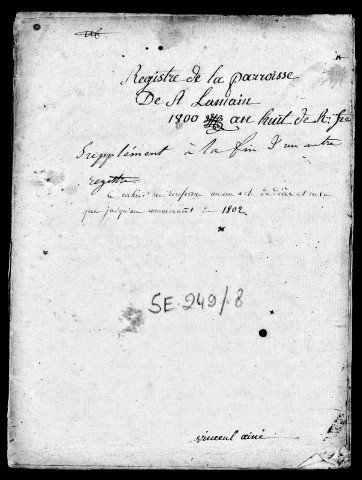 Registre de la parroisse
De St Lamain
1800 an huit de R. fse
Supplément à la fin d'un autre
registre
ce cahier ne renferme aucun acte de décès et ne va
que jusqu'au commencemt de 1802
5E.249/8
vincent ainé